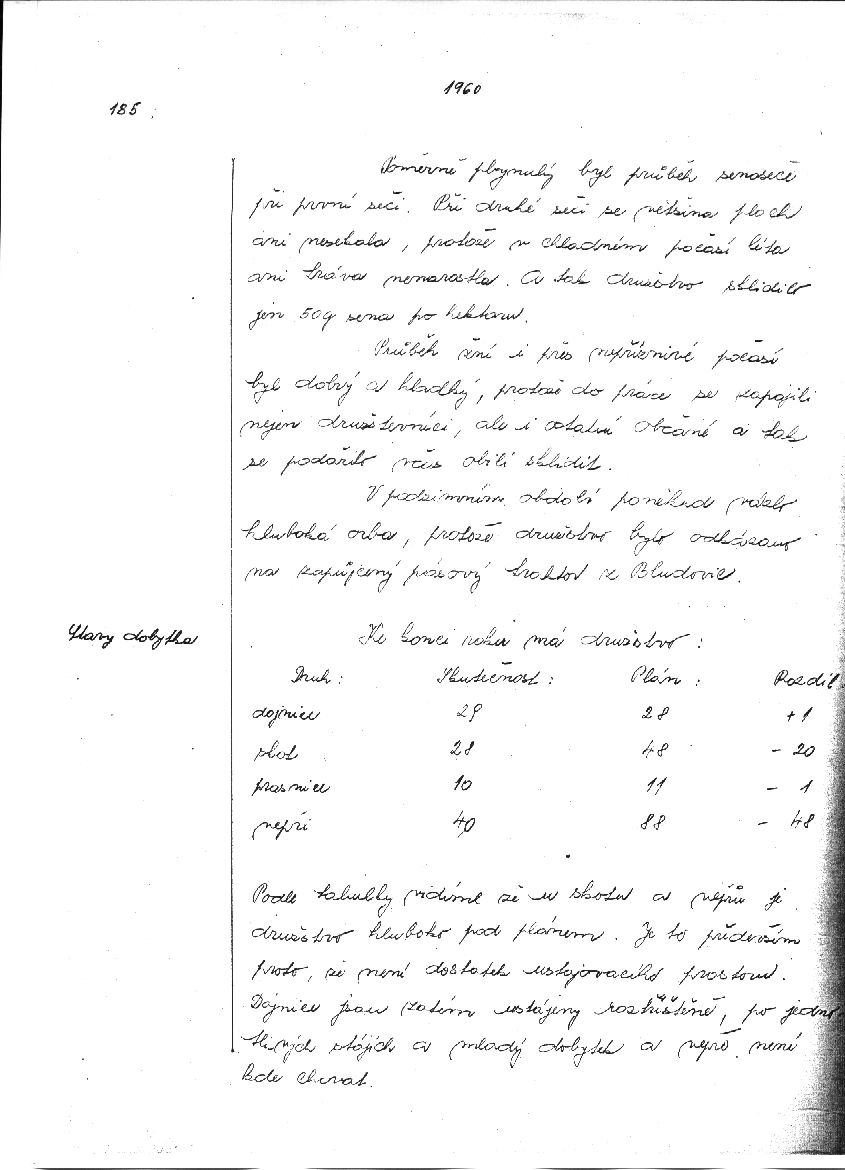 1960
185
Poměrně plynulý byl průběh senoseče
při první seči. Při druhé seči se většina ploch
ani nesekala, protože v chladném počasí léta
ani tráva nenarostla. A tak družstvo sklidilo
jen 50q sena po hektaru.
Průběh žní i přes nepříznivé počasí
byl dobrý a hladký, protože do práce se zapojili
nejen družstevníci, ale i ostatní občané a tak
se podařilo včas obilí sklidit.
V podzimním období poněkud vázla
hluboká orba, protože družstvo bylo odkázano
na zapůjčený pásový traktor z Bludovic.
Stavy dobytka
Ke konci roku má družstvo :
Druh : Skutečnost : Plán : Rozdíl
dojnice 29 28 +1
skot 28 48 - 20
prasnice 10 11 - 1
vepři 40 88 - 48
Podle tabulky vidíme že u skotu a vepřů je
družstvo hluboko pod plánem. Je to především
proto, že není dostatek ustajovacího prostoru.
Dojnice jsou zatím ustájeny roztříštěně, po jedno
tlivých stájích a mladý dobytek a vepře není
kde chovat.